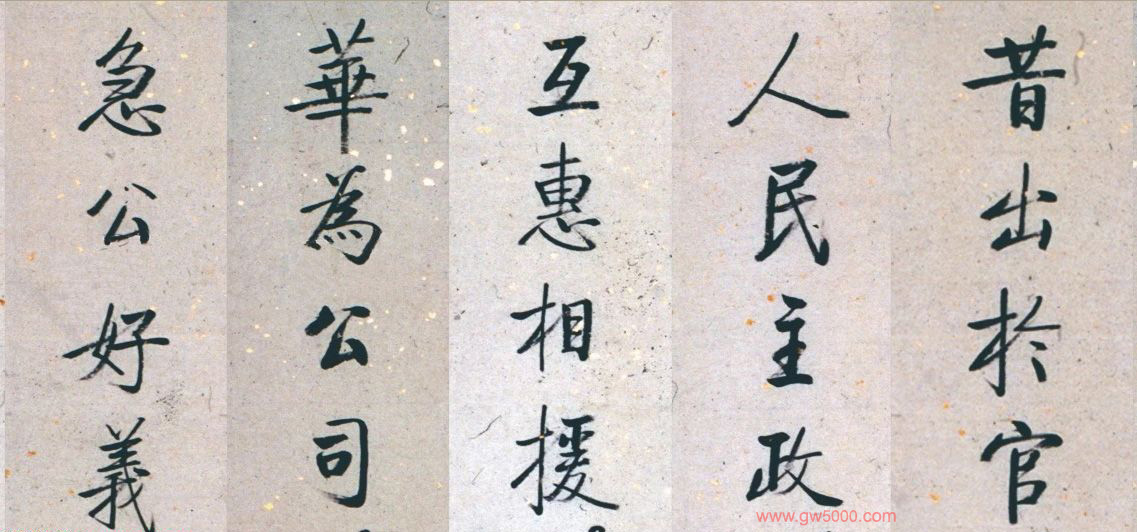 昔出於官
人民主政
互惠相援
華為公司
急公好義
www.gw5000.com